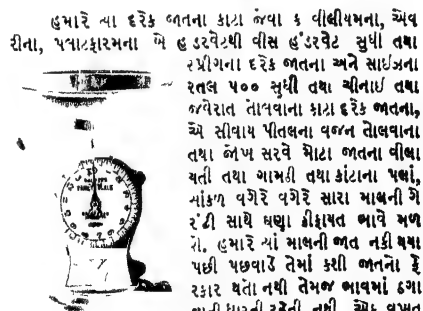 હમારે ત્યા દરેક જાતના કાટા જેવા કે વીલીયમના, એવ
રીના, પ્લાટફારમના બે હંડરવેટથી વીસ હંડરવેટ સુધી તથા
સ્પ્રીંગના દરેક જાતના અને સાઈઝના
રતલ ૫૦૦ સુધી તથા ચીનાઈ તથા
જવેરાત તોલવાના કાટા દરેક જાતના,
એ સીવાય પીતલના વજન તોલવાના
તથા જોખ સરવે મોટા જાતના વીલા
યતી તથા ગામડી તથા કાંટાના પલાં,
સાંકળ વગેરે વગેરે સારા માલની ગે
રંટી સાથે ઘણા કીફાયત ભાવે મળ
શે. હમારે ત્યાં માલની જાત નકી થયા
પછી પછવાડે તેમાં કશી જાતનો ફે
રફાર થતો નથી તેમજ ભાવમાં ઠગા
રહેતી નથી. એક વખત